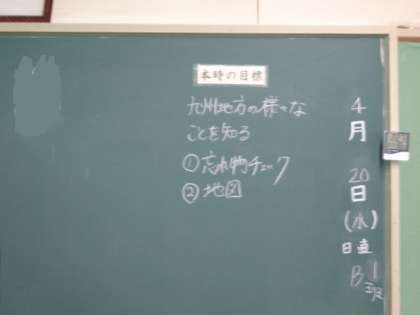 本時の目標
九州地方の様々な
ことを知る
①忘れ物チェック
②地図
4
月
20
日
(水)
日直